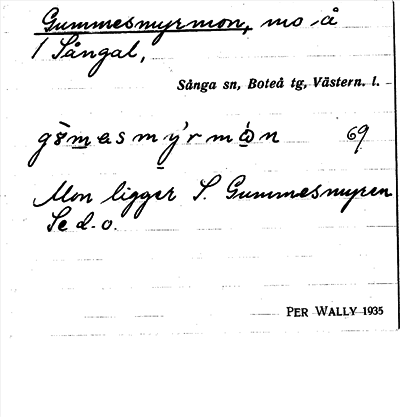 Gummesmyrmon, mo å
/ Sångal,
Sånga sn, Boteå tg, Västern. l.
69
Mon ligger S. Gummesmyren
Se d. o.
PER WALLY 1935